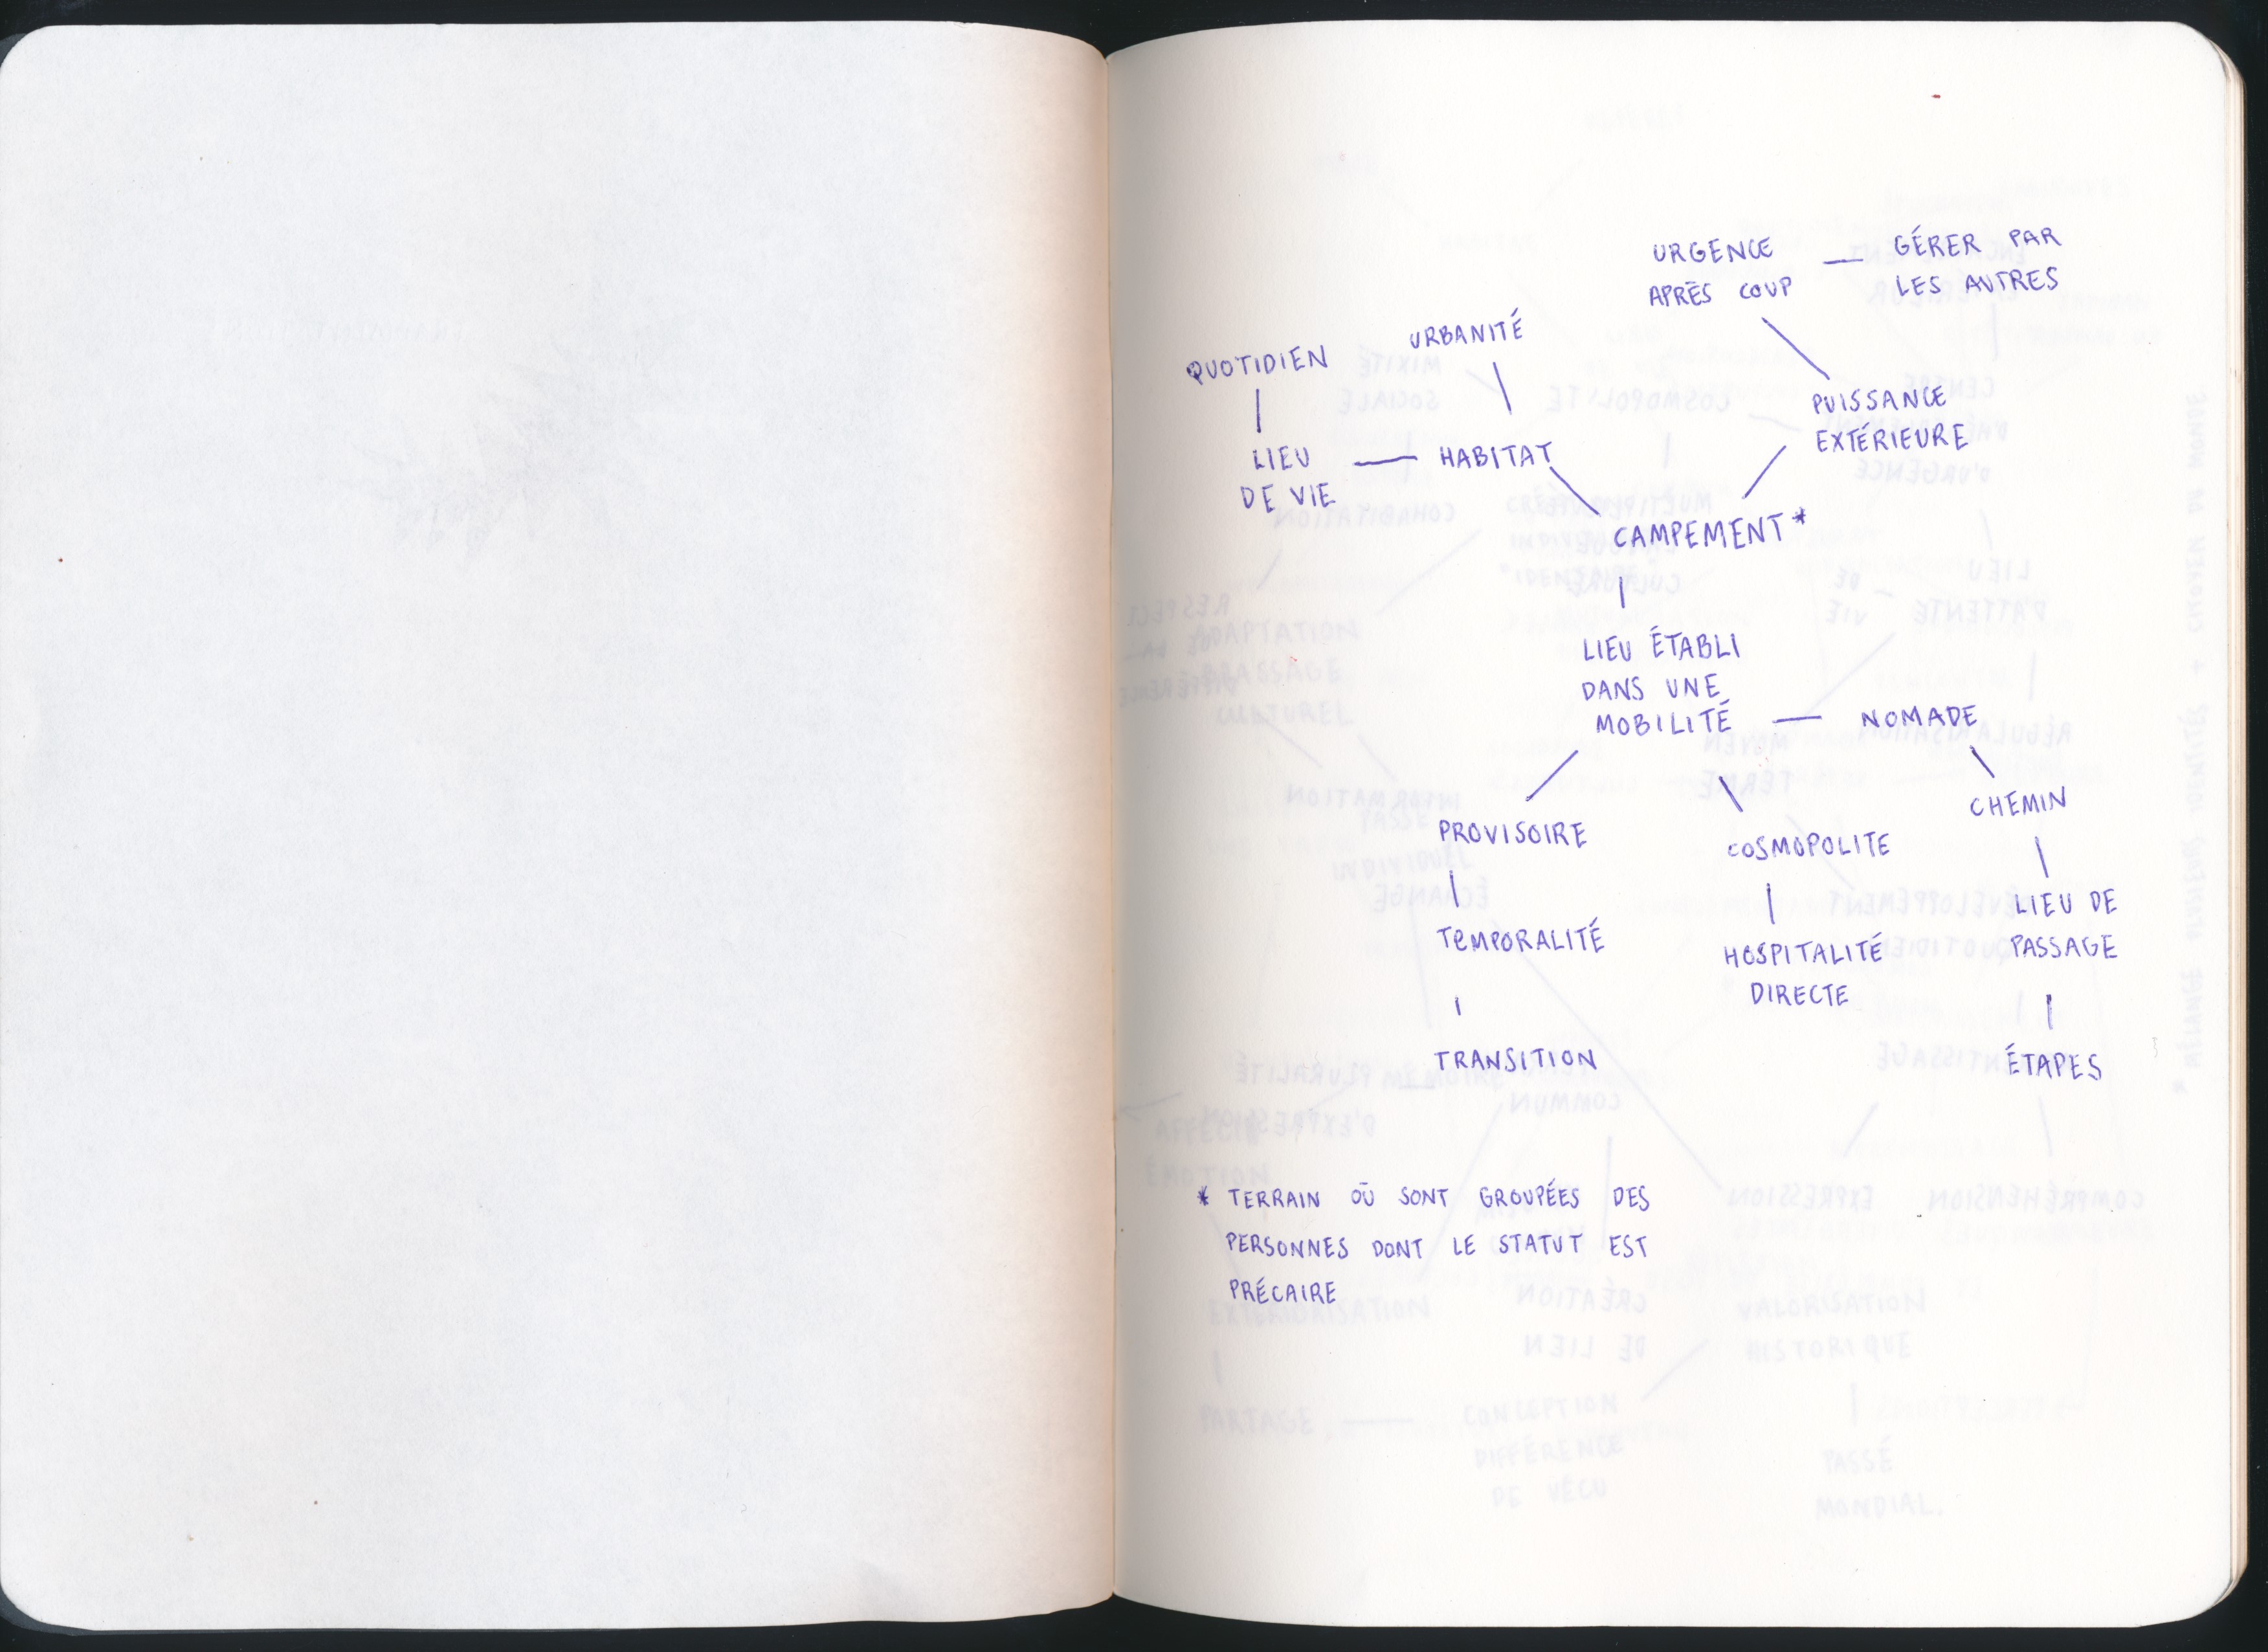 URGENCE — GÉRER PAR
APRÈS COUP LES AUTRES
URBANITÉ
QUOTIDIEN
PUISSANCE
EXTÉRIEURE
LIEU — HABITAT
DE VIE
CAMPEMENT*
LIEU ÉTABLI
DANS UNE
MOBILITÉ — NOMADE
CHEMIN
PROVISOIRE
COSMOPOLITE
LIEU DE
PASSAGE
TEMPORALITÉ
HOSPITALITÉ
DIRECTE
TRANSITION
ÉTAPES
* TERRAIN OÙ SONT GROUPÉES DES
PERSONNES DONT LE STATUT EST
PRÉCAIRE